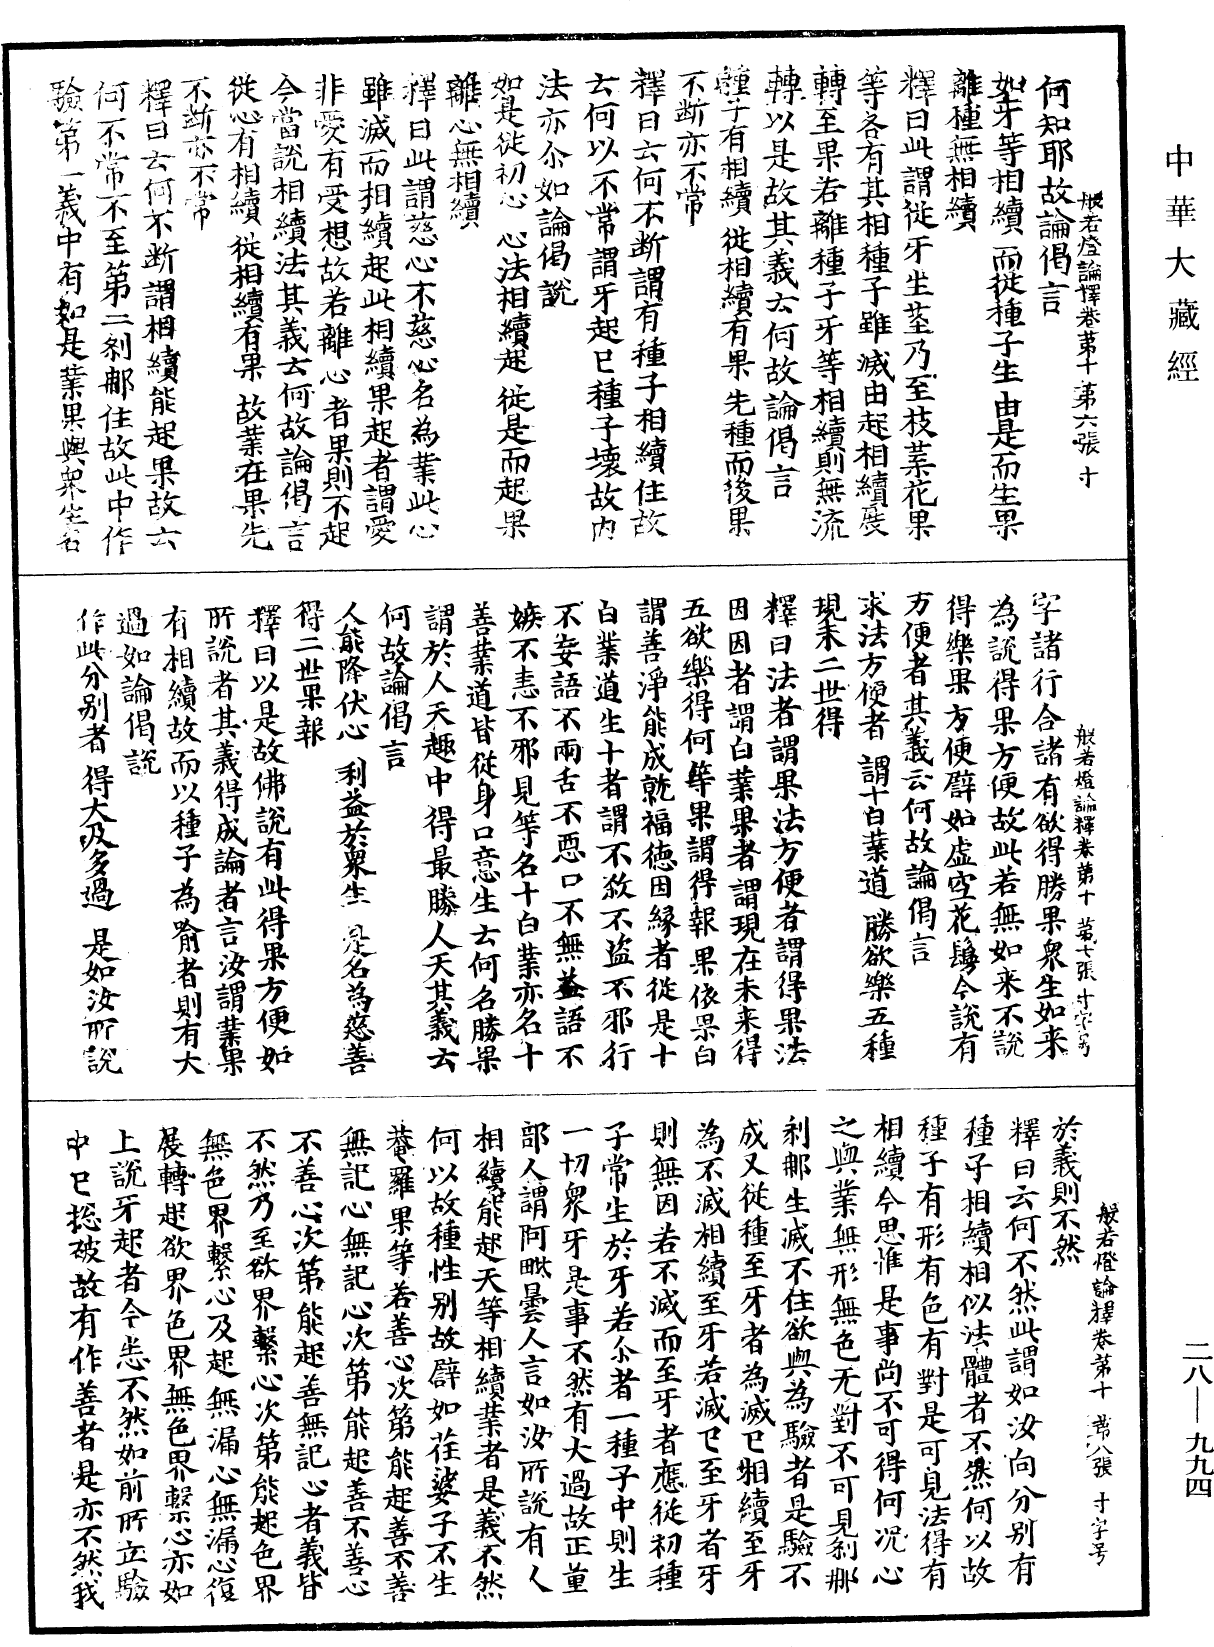 中華大藏經
般若燈論釋卷第十 第六張 寸
何知耶故論偈言
如牙等相續 而從種子生 由是而生果
離種無相續
釋曰此謂從牙生莖乃至枝葉花果
等各有其相種子雖滅由起相續展
轉至果若離種子牙等相續則無流
轉以是故其義云何故論偈言
種子有相續 從相續有果 先種而後果
不断亦不常
釋曰云何不断謂有種子相續住故
云何以不常謂牙起已種子壞故内
法亦尒如論偈說
如是從初心 心法相續起 從是而起果
離心無相續
釋曰此謂慈心不慈心名為業此心
雖滅而相續起此相續果起者謂愛
非愛有受想故若離心者果則不起
今當說相續法其義云何故論偈言
從心有相續 從相續有果 故業在果先
不断亦不常
釋曰云何不断謂相續能起果故云
何不常不至第二剎那住故此中作
驗第一義中有如是業果與衆生名
般若燈論釋卷第十 第七張 寸字号
字諸行合諸有欲得勝果衆生如来
為說得果方便故此若無如来不說
得樂果方便譬如虛空花鬘今說有
方便者其義云何故論偈言
求法方便者 謂十白業道 勝欲樂五種
現未二世得
釋曰法者謂果法方便者謂得果法
因因者謂白業果者謂現在未来得
五欲樂得何等果謂得報果依果白
謂善淨能成就福德因緣者從是十
白業道生十者謂不煞不盜不邪行
不妄語不兩舌不惡口不無益語不
嫉不恚不邪見等名十白業亦名十
善業道皆從身口意生云何名勝果
謂於人天趣中得最勝人天其義云
何故論偈言
人能降伏心 利益於衆生 是名為慈善
得二世果報
釋曰以是故佛說有此得果方便如
所說者其義得成論者言汝謂業果
有相續故而以種子為喻者則有大
過如論偈說
作此分別者 得大及多過 是如汝所說
般若燈論釋卷第十 第八張 寸字号
於義則不然
釋曰云何不然此謂如汝向分別有
種子相續相似法體者不然何以故
種子有形有色有對是可見法得有
相續今思惟是事尚不可得何況心
之與業無形無色无對不可見剎那
剎那生滅不住欲與為驗者是驗不
成又從種至牙者為滅已相續至牙
為不滅相續至牙若滅已至牙者牙
則無因若不滅而至牙者應從初種
子常生於牙若尒者一種子中則生
一切衆牙是事不然有大過故正量
部人謂阿毗曇人言如汝所說有人
相續能起天等相續業者是義不然
何以故種性別故譬如荏婆子不生
菴羅果等若善心次第能起善不善
無記心無記心次第能起善不善心
不善心次第能起善無記心者義皆
不然乃至欲界繫心次第能起色界
無色界繫心及起無漏心無漏心復
展轉起欲界色界無色界繫心亦如
上說牙起者今悉不然如前所立驗
中已揔破故有作善者是亦不然我
二八—九九四